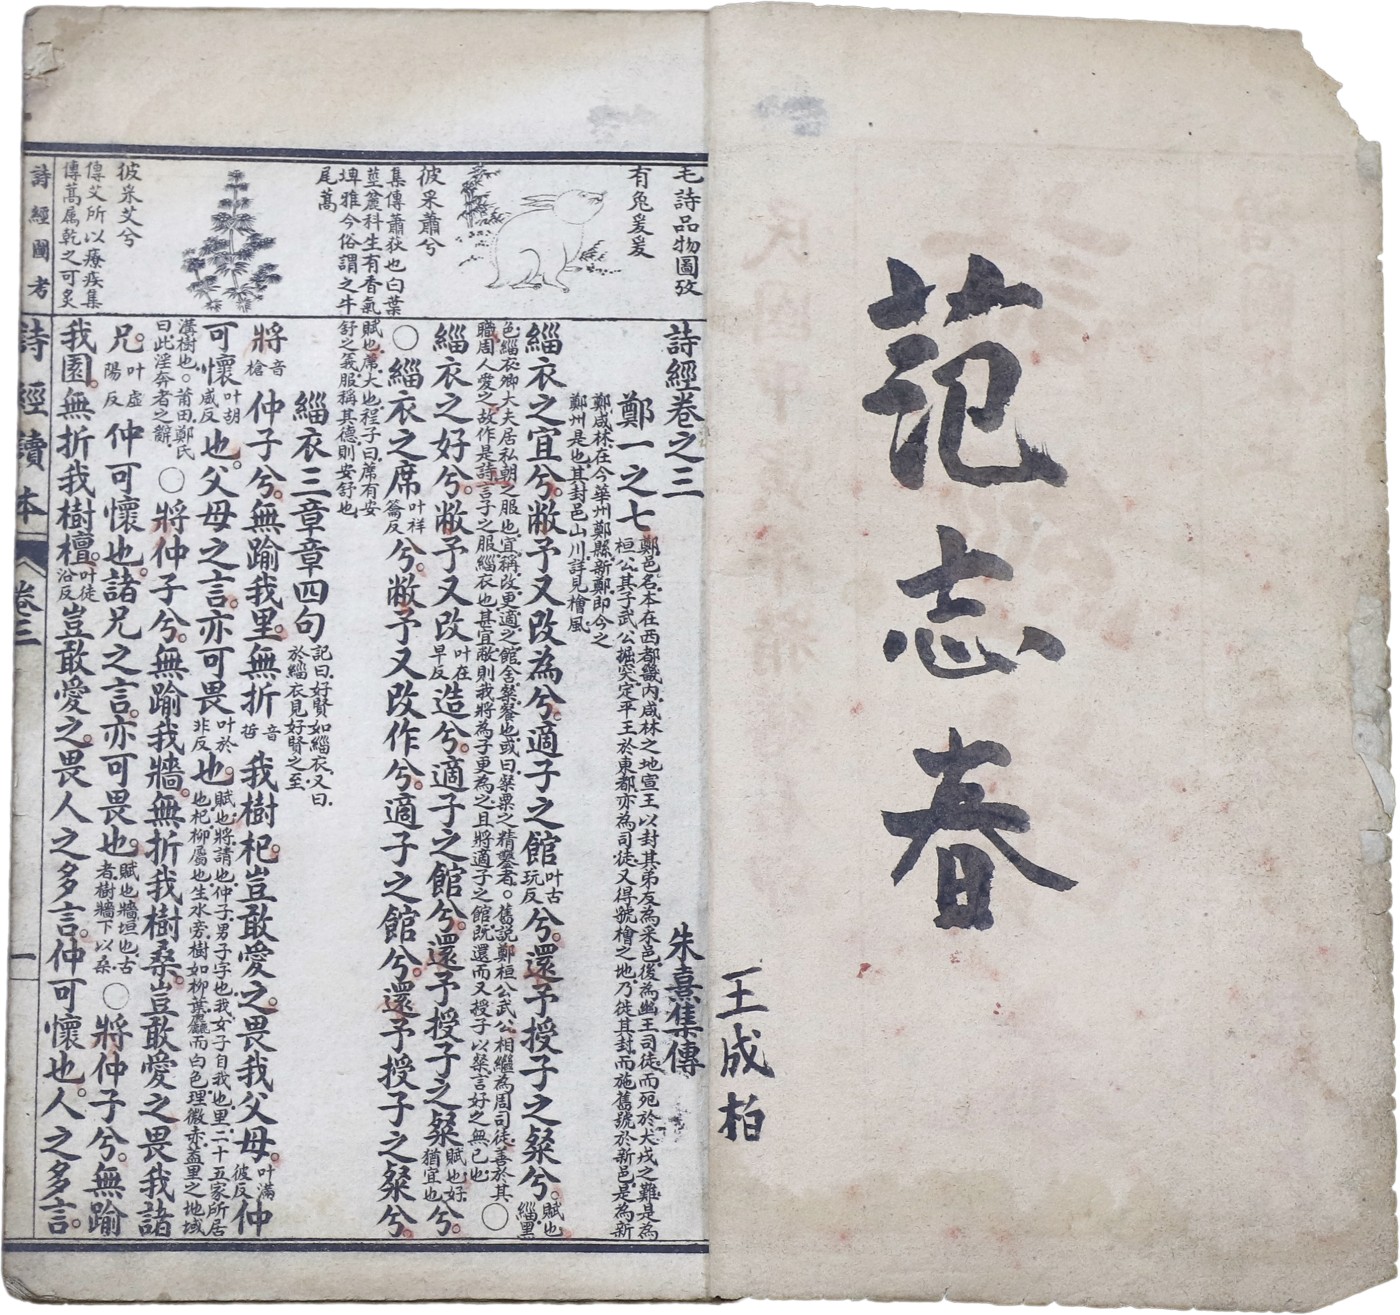 范志春
王成柏
毛詩品物圖攷
有兔爰爰
彼采蕭兮
集傳蕭荻也白葉
莖麄科生有香氣
埤雅今俗謂之牛
尾蒿
彼采艾兮
傳艾所以療疾集
傳蒿屬乾之可炙
詩經圖考
詩經卷之三
朱熹集傳
鄭一之七
鄭邑名本在西都畿內咸林之地宣王以封其弟友為采邑後為幽王司徒而死於犬戎之難是為
桓公其子武公掘突定平王於東都亦為司徒又得號檜之地乃徙其封而施舊號於新邑是為新
鄭咸林在今華州鄭縣新鄭即今之
鄭州是也其封邑山川詳見檜風
緇衣之宜兮敝予又改為兮適子之館叶古玩反兮還予授子之粲兮賦也緇黑
色緇衣卿大夫居私朝之服也宜稱改更適之館舍粲餐也或曰粲粟之精鑿者舊說鄭桓公武公相繼為周司徒善於其
職周人愛之故作是詩言子之服緇衣也甚宜敝則我將為子更為之且將適子之館既還而又授子以粲言好之無已也○
緇衣之好兮敝予又改叶在早反造兮適子之館兮還予授子之粲賦也好猶宜也兮
○緇衣之席叶祥籥反兮敝予又改作兮適子之館兮還予授子之粲兮
賦也席大也程子曰席有安
舒之義服稱其德則安舒也
緇衣三章章四句記曰好賢如緇衣又曰於緇衣見好賢之至
將音槍仲子兮無踰我里無折音哲我樹杞豈敢愛之畏我父母叶滿彼反仲
可懷叶胡威反也父母之言亦可畏叶於非反也賦也將請也仲子男子字也我女子自我也里二十五家所居也杞柳屬也生水旁樹如柳葉麤而白色理微赤蓋里之地域
溝樹也○莆田鄭氏曰此淫奔者之辭○將仲子兮無踰我牆無折我樹桑豈敢愛之畏我諸
兄叶虛陽反仲可懷也諸兄之言亦可畏也賦也牆垣也古者樹牆下以桑○將仲子兮無踰
我園無折我樹檀叶徒沿反豈敢愛之畏人之多言仲可懷也人之多言
詩經讀本
卷三
一